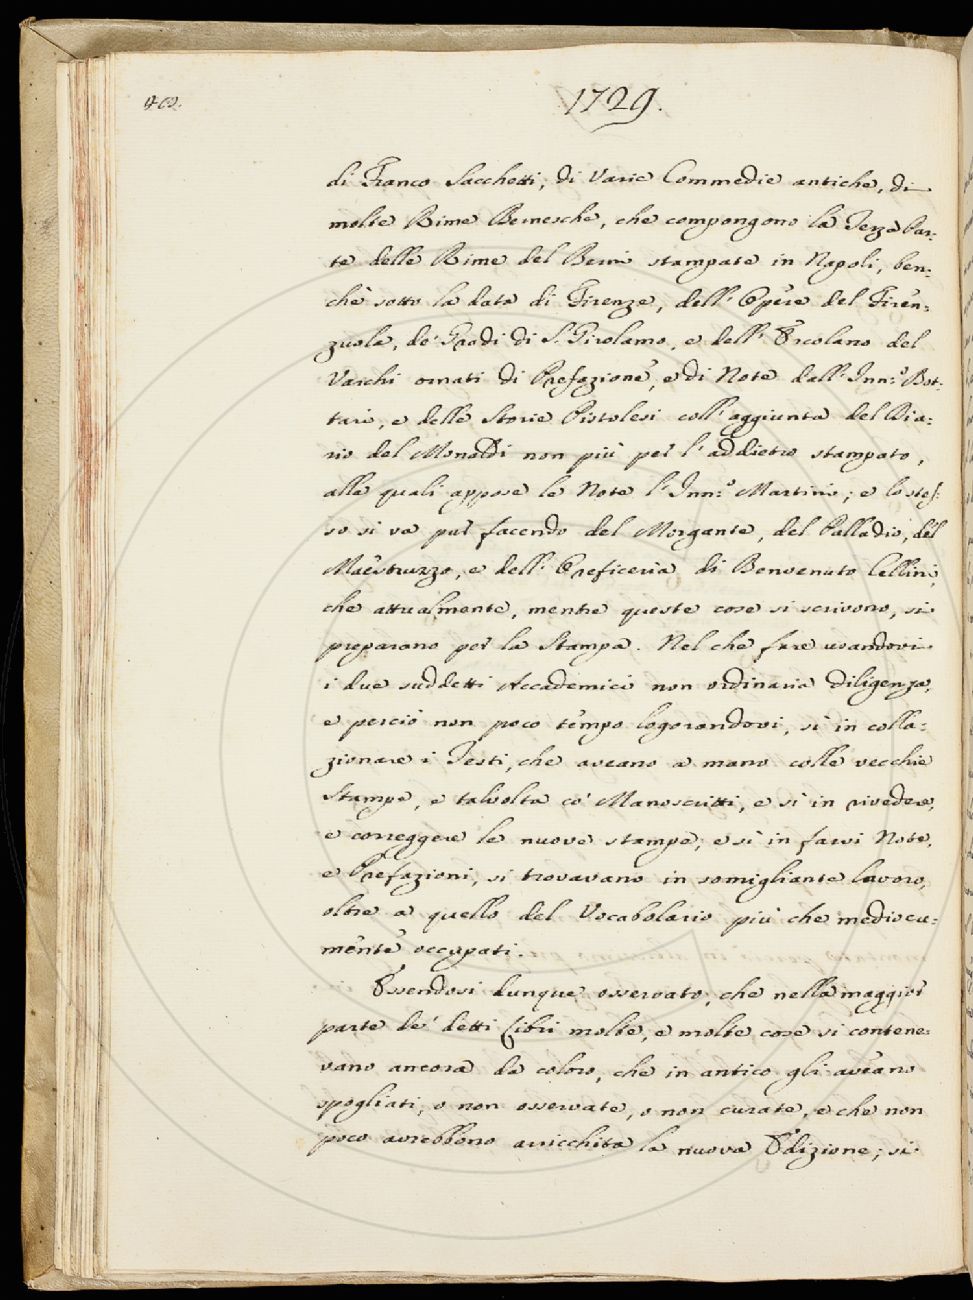 1729.
di Franco Sacchetti, di Varie Commedie antiche, di
molte Rime Bernesche, che compongono la Terza Par-
te delle Rime del Berni stampate in Napoli, ben-
chè sotto la data di Firenze, dell' Opere del Firen-
zuola, de' Gradi di S. Girolamo, e dell' Ercolano del
Varchi ornati di Prefazione, e di Note dall' Inn.º Bot-
tari, e delle Storie Pistolesi coll' aggiunta del Dia-
rio del Monaldi non più per l' addietro stampato,
alle quali appose le Note l' Inn.º Martini; e lo stes-
so si va pur facendo del Morgante, del Palladio, del
Maestruzzo, e dell' Oreficeria di Benvenuto Cellini,
che attualmente, mentre queste cose si scrivono, si
preparano per la Stampa. Nel che fare usandovi
i due suddetti Accademici non ordinaria diligenza,
e perciò non poco tempo logorandovi, sì in colla-
zionare i Testi, che aveano a mano colle vecchie
Stampe, e talvolta co' Manoscritti, e sì in rivedere,
e correggere le nuove stampe, e sì in farvi Note,
e Prefazioni, si trovavano in somigliante lavoro,
oltre a quello del Vocabolario più che mediocre-
mente occupati.
Essendosi dunque osservato, che nella maggior
parte de' detti Libri molte, e molte cose si contene-
vano ancora da coloro, che in antico gli aveano
spogliati, o non osservate, o non curate, e che non
poco avrebbono arricchita la nuova Edizione; si